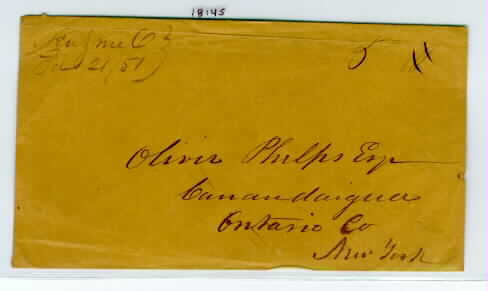 18145
21, 51
5
Oliver Phelps Esq
Canandaigua
Ontario Co
New York